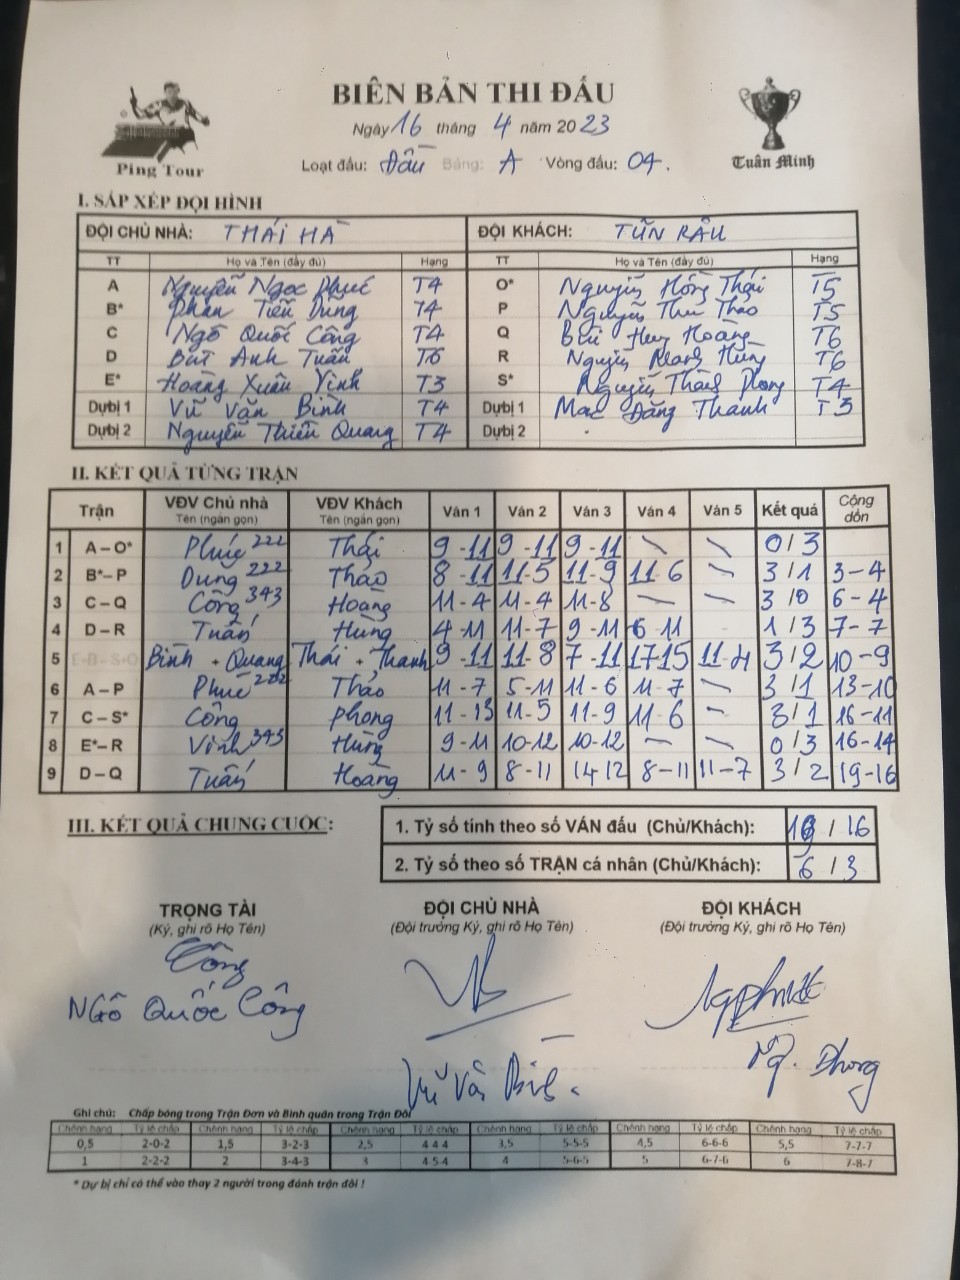 BIÊN BẢN THI ĐẤU
Ngày 16 tháng 4 năm 2023
Ping Tour
Loạt đấu: Đầu Bảng: A Vòng đấu: 04.
Tuấn Minh
I. SẮP XẾP ĐỘI HÌNH
ĐỘI CHỦ NHÀ: THÁI HÀ ĐỘI KHÁCH: TŨN RÂU
TT Họ và Tên (đầy đủ) Hạng TT Họ và Tên (đầy đủ) Hạng
A Nguyễn Ngọc Phúc T4 O* Nguyễn Hồng Thái T5
B* Phan Tiến Dũng T4 P Nguyễn Thu Thảo T5
C Ngô Quốc Công T4 Q Bùi Huy Hoàng T6
D Bùi Anh Tuấn T6 R Nguyễn Mạnh Hùng T6
E* Hoàng Xuân Vinh T3 S* Nguyễn Thăng Phong T4
Dự bị 1 Vũ Văn Bình T4 Dự bị 1 Mạc Đăng Thanh T3
Dự bị 2 Nguyễn Thiên Quang T4 Dự bị 2
II. KẾT QUẢ TỪNG TRẬN
Trận VĐV Chủ nhà VĐV Khách Ván 1 Ván 2 Ván 3 Ván 4 Ván 5 Kết quả Cộng dồn
Tên (ngắn gọn) Tên (ngắn gọn)
1 A – O* Phúc 222 Thái 9-11 9-11 9-11 \ \ 0/3
2 B* – P Dung 222 Thảo 8-11 11-5 11-9 11-6 \ 3/1 3-4
3 C – Q Công 343 Hoàng 11-4 11-4 11-8 – \ 3/0 6-4
4 D – R Tuấn Hùng 4-11 11-7 9-11 6-11 - 1/3 7-7
5 E+B – S+O Bình + Quang Thái + Thanh 9-11 11-8 7-11 17-15 11-4 3/2 10-9
6 A – P Phúc 222 Thảo 11-7 5-11 11-6 11-7 \ 3/1 13-10
7 C – S* Công Phong 11-13 11-5 11-9 11-6 - 3/1 16-11
8 E* – R Vinh 343 Hùng 9-11 10-12 10-12 – \ 0/3 16-14
9 D – Q Tuấn Hoàng 11-9 8-11 14 12 8-11 11-7 3/2 19-16
III. KẾT QUẢ CHUNG CUỘC:
1. Tỷ số tính theo số VÁN đấu (Chủ/Khách): 19 / 16
2. Tỷ số theo số TRẬN cá nhân (Chủ/Khách): 6 / 3
TRỌNG TÀI ĐỘI CHỦ NHÀ ĐỘI KHÁCH
(Ký, ghi rõ Họ Tên) (Đội trưởng Ký, ghi rõ Họ Tên) (Đội trưởng Ký, ghi rõ Họ Tên)
Công
NGÔ QUỐC Công
Vũ Văn Bình Ng. Phong
Ghi chú: Chấp bóng trong Trận Đơn và Bình quân trong Trận Đôi
Chênh hạng Tỷ lệ chấp Chênh hạng Tỷ lệ chấp Chênh hạng Tỷ lệ chấp Chênh hạng Tỷ lệ chấp Chênh hạng Tỷ lệ chấp Chênh hạng Tỷ lệ chấp
0,5 2-0-2 1,5 3-2-3 2,5 4 4 4 3,5 5-5-5 4,5 6-6-6 5,5 7-7-7
1 2-2-2 2 3-4-3 3 4 5 4 4 5-6-5 5 6-7-6 6 7-8-7
* Dự bị chỉ có thể vào thay 2 người trong đánh trận đôi !